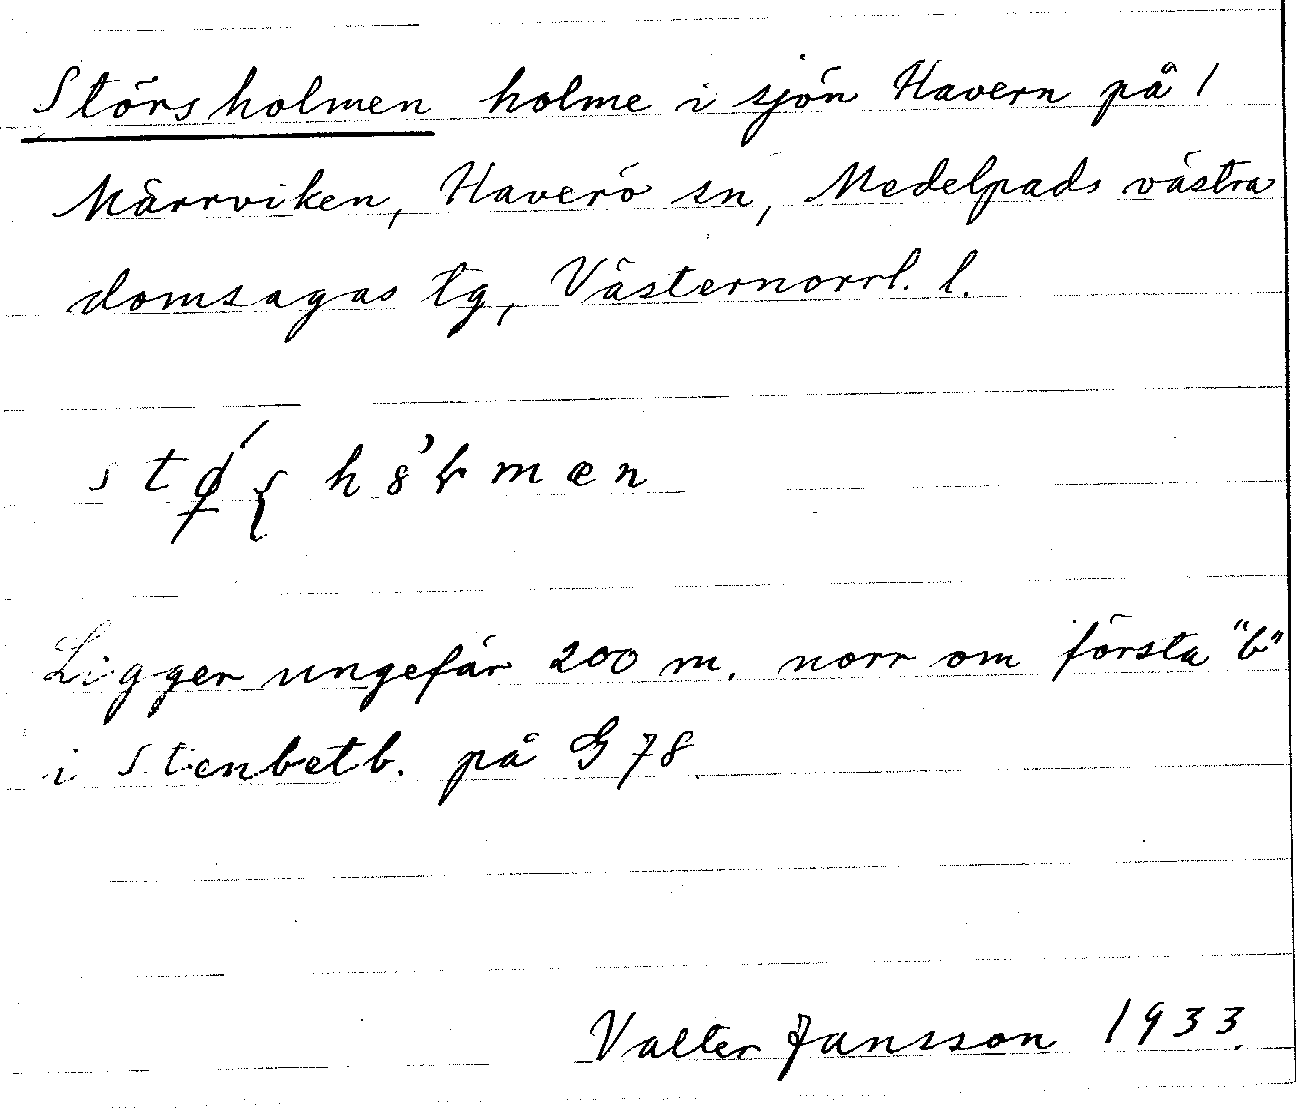 Störsholmen holme i sjön Havern på 1
Märrviken, Haverö sn, Medelpads västra
domsagas tg, Västernorrl. l.
Ligger ungefär 200 m. norr om första "b"
i Stenbetb. på G 78
Valter Jansson 1933.